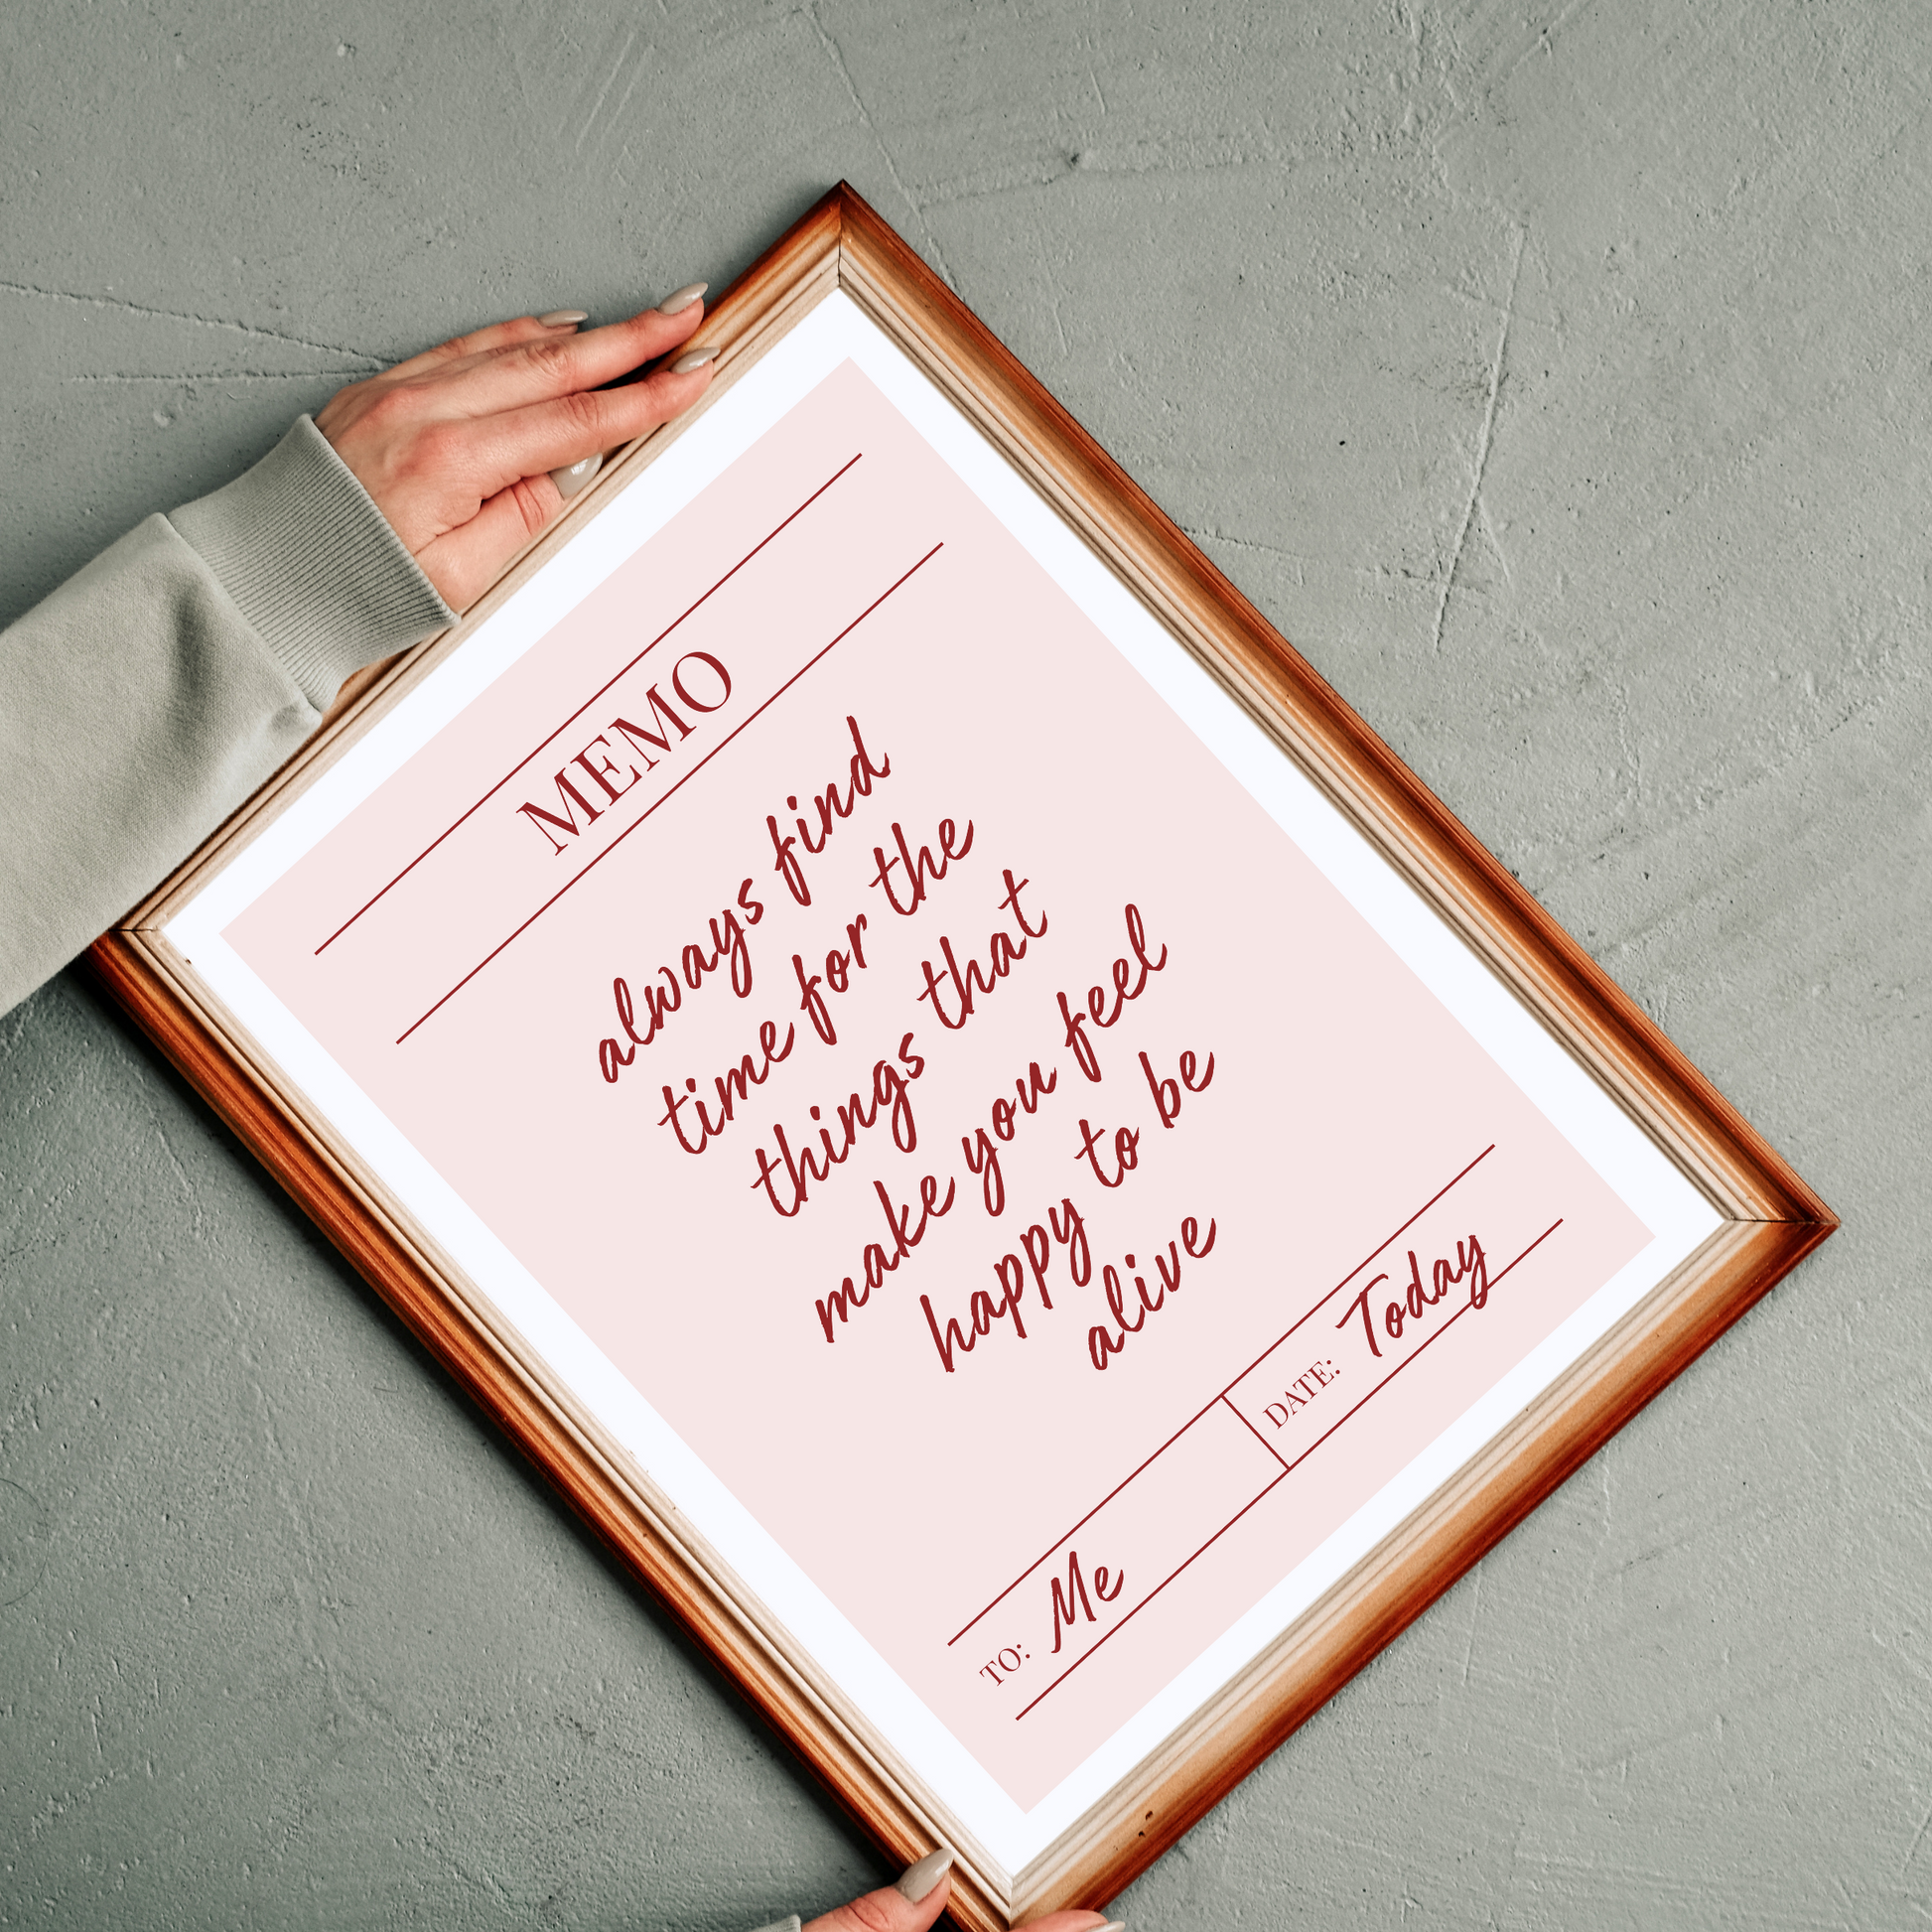 MEMO
always find
time for the
things that
make you feel
happy to be
alive
TO: Me
DATE: Today